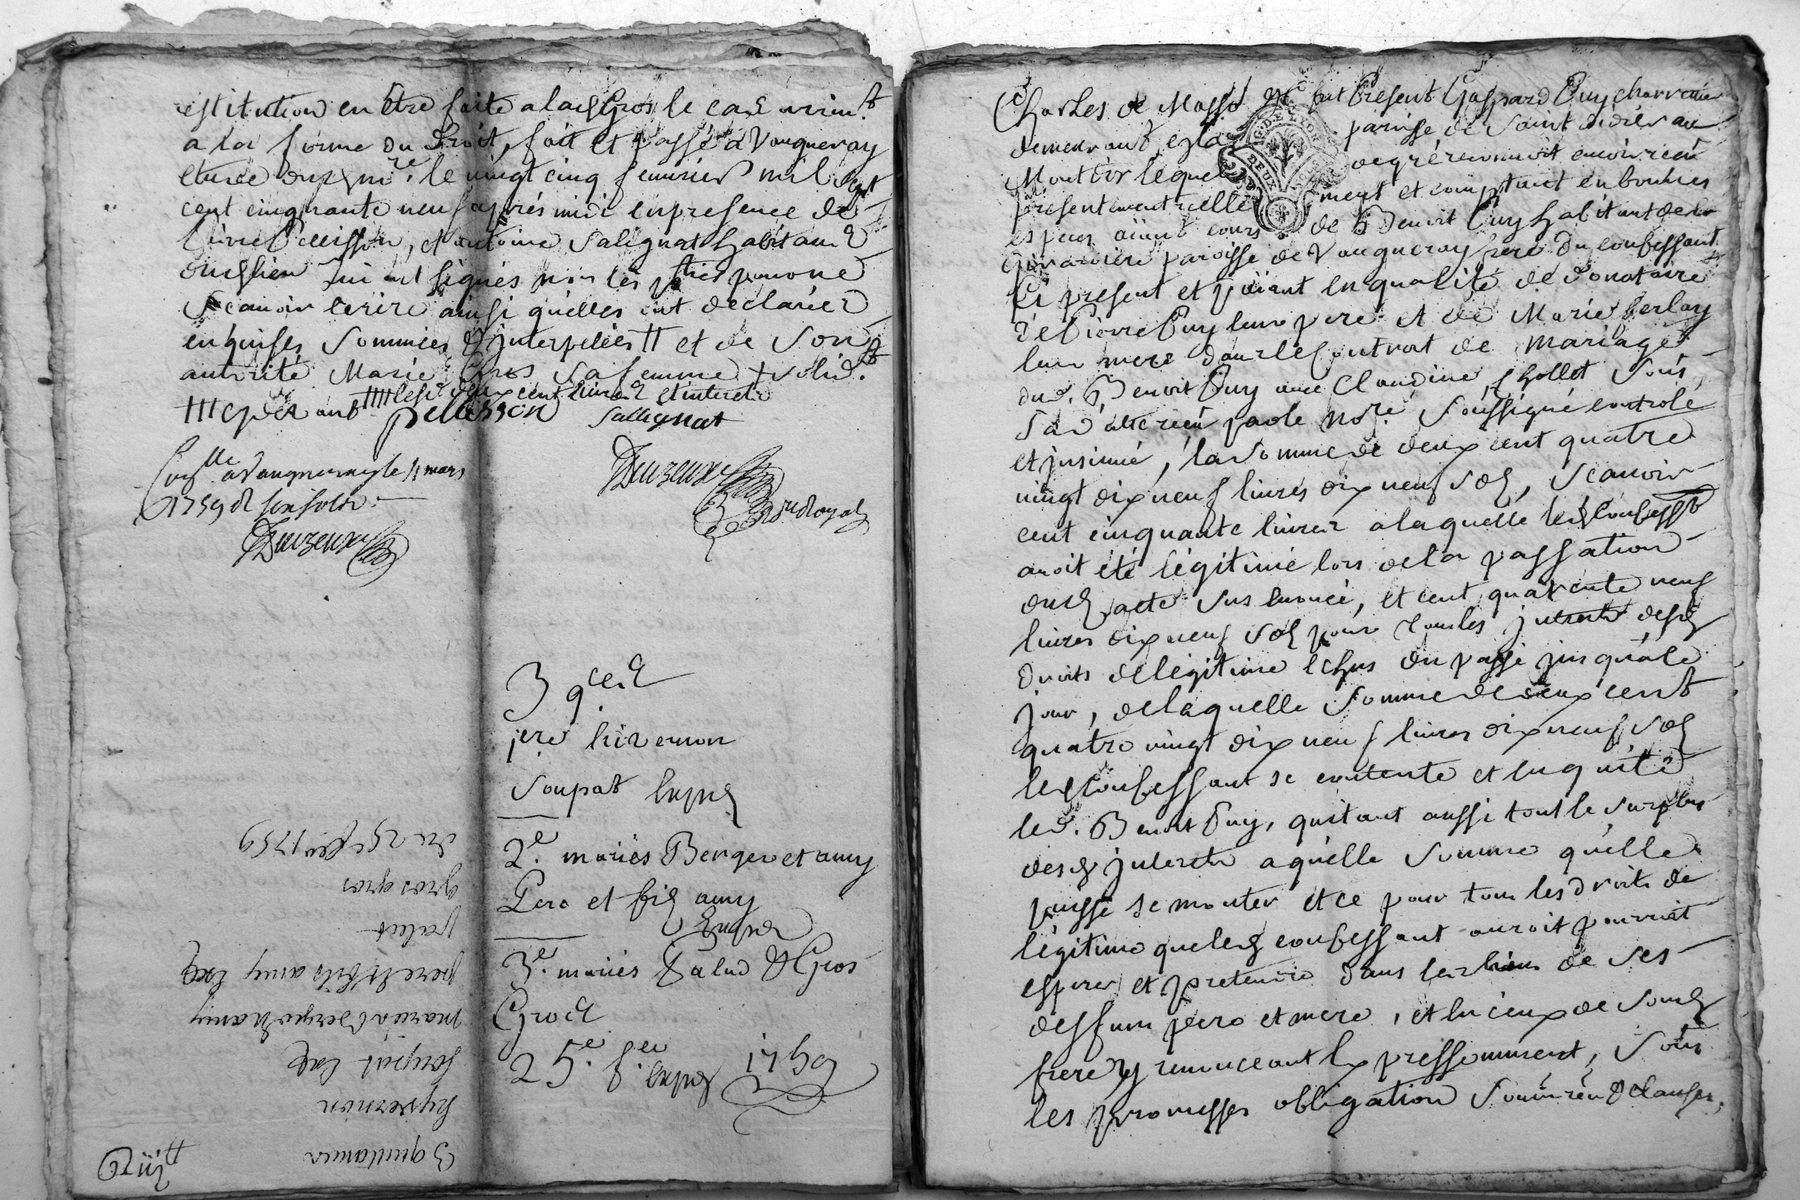 estitution en être faite a lad Gros le cas avenant
a la forme du Droit, fait et passé a Vaugneray
etude dud nore. le vingt cinq fevrier mil sept
cent cinquante neuf après midi en presence de
Pierre Pelisson, et antoine Salignat habitans
dud lieu qui ont signés non les parties pour ne
scavoir ecrire ainsi quelles ont declarées
enquises sommées & interpellées tt et de son
autorité Marie Gros sa femme + solid.t
pellisson Sallignat
Conllé a Vaugneray le 11 mars
1759 d six sols
Duzeux
Duzeux
No.re Royal
3 qces
1ere hivernon
Soupat
2e. mariés Berger et amy
Pere et fils amy
3e. mariés Palud & Gros
Gros
25e. fer 1759
3 quittances
hyvernon
soupat
mariés Berger & amy
pere et fils amy
palud
gros gros
du 25 fev 1759
Charles de Masso est fut Present Gaspard Puy charron
demeurant en la paroisse de Saint didier au
Mont d'or lequel de gré reconnoit avoir receu
presentement reellement et comptant en bonnes
especes aiant cours de Benoit Puy habitant de la
paroisse de Vaugneray frere du confessant
Ici present et paiant en qualité de donataire
de Pierre Puy leur pere et de Marie
leur mere dans le Contrat de mariage
dud. Benoit Puy avec Claudine chollet sous
sa datte receu par le nore. soussigné controlé
et insinué, la somme de deux cent quatre
vingt dix neuf livres dix neuf sols, scavoir
cent cinquante livres a laquelle led confesst
avoit été légitimé lors de la passation
dud acte sus enoncé, et cent quarente neuf
livres dix neuf sols pour tous les interets desd
droits de légitime echus du passé jusqu'a ce
jour, de laquelle somme de deux cent
quatre vingt dix neuf livres dix neuf sols
led confessant se contente et en quitte
led. Benoit Puy, quitant aussi tout le surplus
desd interets a quelle somme quelle
puisse se monter et ce pour tous les droits de
légitime que led confessant auroit pouvoit
esperer et pretendre dans les biens de ses
deffunts pere et mere, et en ceux de sond
frere y renonceant expressemment, sous
les promesses obligation soumn renon & clauses,